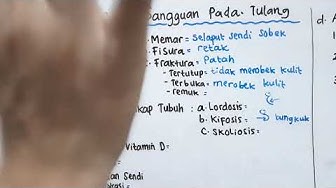 angguan Pada Tulang
Memar = Selaput Sendi Sobek
Fisura = retak
Fraktura = Patah
- Tertutup = tidak merobek kulit
- Terbuka = merobek kulit
- remuk =
kap Tubuh : a. Lordosis =
b. Kifosis = bungkuk
C. Skoliosis =
Vitamin D =
an Sendi
d.
1
2
3